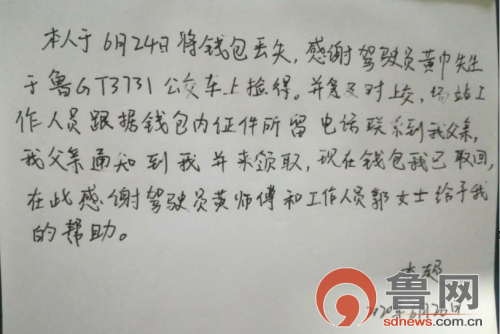 本人于6月24日将钱包丢失，感谢驾驶员黄巾先生
于鲁GT3731公交车上捡得。并及时上交，场站工
作人员跟据钱包内证件所留电话联系到我父亲，
我父亲通知到我并来领取，现在钱包我已取回，
在此感谢驾驶员黄师傅和工作人员郭女士给予我
的帮助。
6月26日
鲁网
sdnews.com.cn